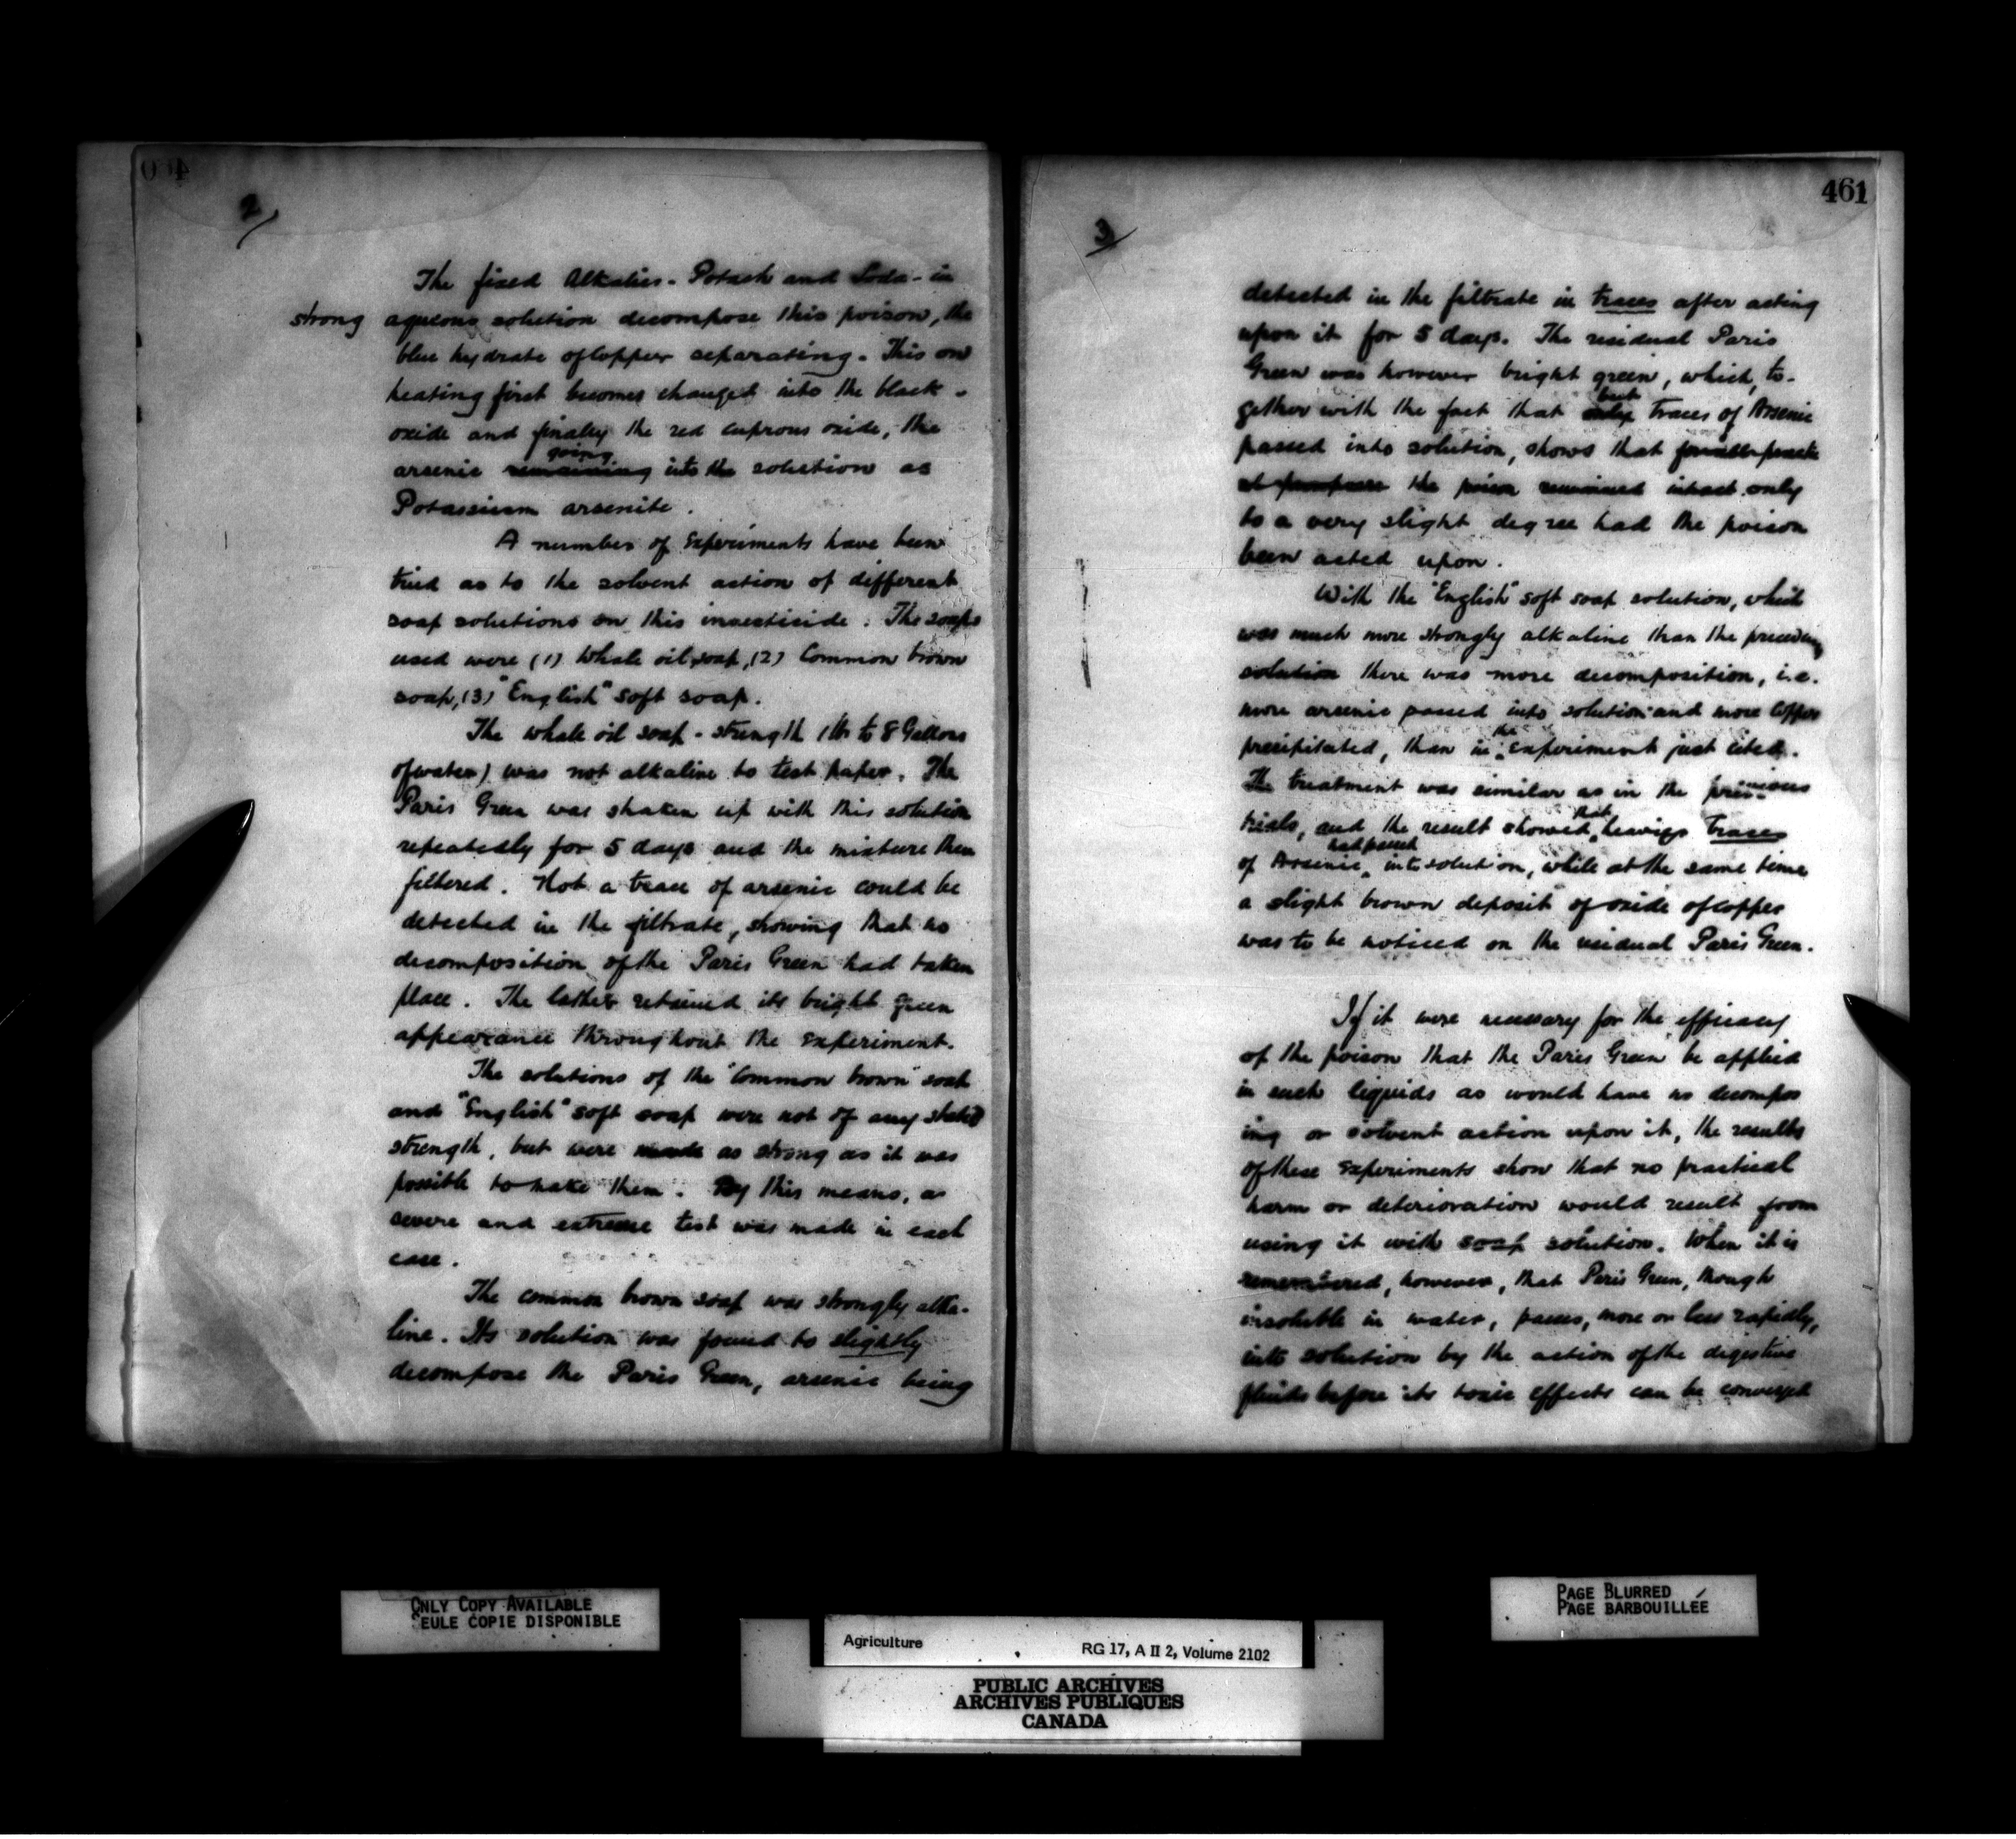 2/
The fixed Alkalies - Potash and Soda - in
strong aqueous solution decompose this poison, the
blue hydrate of Copper separating. This on
heating first becomes changed into the black -
oxide and finally the red cuprous oxide, the
going
arsenic remaining into the solution as
Potassium arsenite.
A number of Experiments have been
tried as to the solvent action of different
soap solutions on this insecticide. The soaps
used were (1) Whale oil soap, (2) Common brown
soap, (3) "English" soft soap.
The whale oil soap - strength 1 lb to 8 Gallons
of water) was not alkaline to test paper. The
Paris Green was shaken up with this solution
repeatedly for 5 days and the mixture then
filtered. Not a trace of arsenic could be
detected in the filtrate, showing that no
decomposition of the Paris Green had taken
place. The latter retained its bright green
appearance throughout the Experiment.
The solutions of the "Common brown" soap
and "English" soft soap were not of any stated
strength, but were made as strong as it was
possible to make them. By this means, a
severe and extreme test was made in each
case.
The common brown soap was strongly alka-
line. Its solution was found to slightly
decompose the Paris Green, arsenic being
461
3/
detected in the filtrate in traces after acting
upon it for 5 days. The residual Paris
Green was however bright green, which, to-
but
gether with the fact that only traces of Arsenic
passed into solution, shows that for all pract
al purposes the poison remained intact only
to a very slight degree had the poison
been acted upon.
With the "English" soft soap solution, which
was much more strongly alkaline than the preceding
solution there was more decomposition, i.e.
more arsenic passed into solution and more Copper
the
precipitated, than in experiment just cited.
The treatment was similar as in the previous
that
trials, and the result showed heavier traces
had passed
of Arsenic into solution, while at the same time
a slight brown deposit of oxide of copper
was to be noticed on the residual Paris Green.
If it were necessary for the efficacy
of the poison that the Paris Green be applied
in such liquids as would have no decompos
ing or solvent action upon it, the results
of these Experiments show that no practical
harm or deterioration would result from
using it with soap solution. When it is
remembered, however, that Paris Green, though
insoluble in water, passes, more or less rapidly,
into solution by the action of the digestive
fluids before its toxic effects can be conveyed
ONLY COPY AVAILABLE
SEULE COPIE DISPONIBLE
PAGE BLURRED
PAGE BARBOUILLÉE
Agriculture RG 17, A II 2, Volume 2102
PUBLIC ARCHIVES
ARCHIVES PUBLIQUES
CANADA